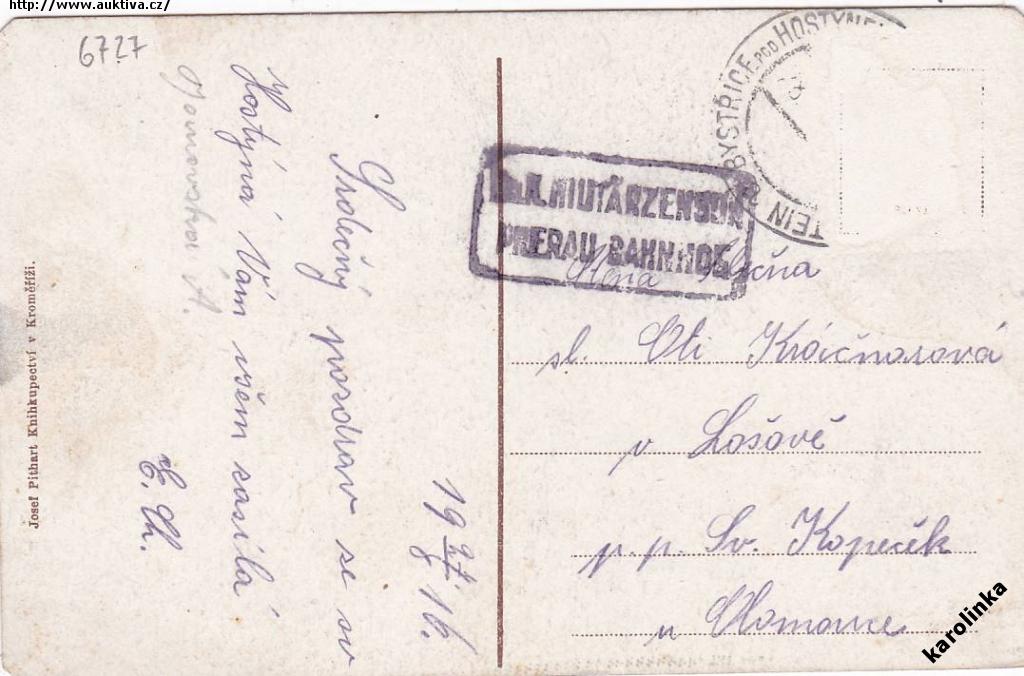 http://www.auktiva.cz/
6727
19 27/8 16.
Srdečný pozdrav ze sv
Hostýna Vám všem zasílá
E. Ch.
Josef Pithart Knihkupectví v Kroměříži.
BYSTŘICE POD HOSTÝNE
TEIN
K.K. MILITÄRZENSUR
PRERAU BAHNHOF
Slečna
sl. Oti
v Lošově
p. p. Sv. Kopeček
u Olomouce
karolinka